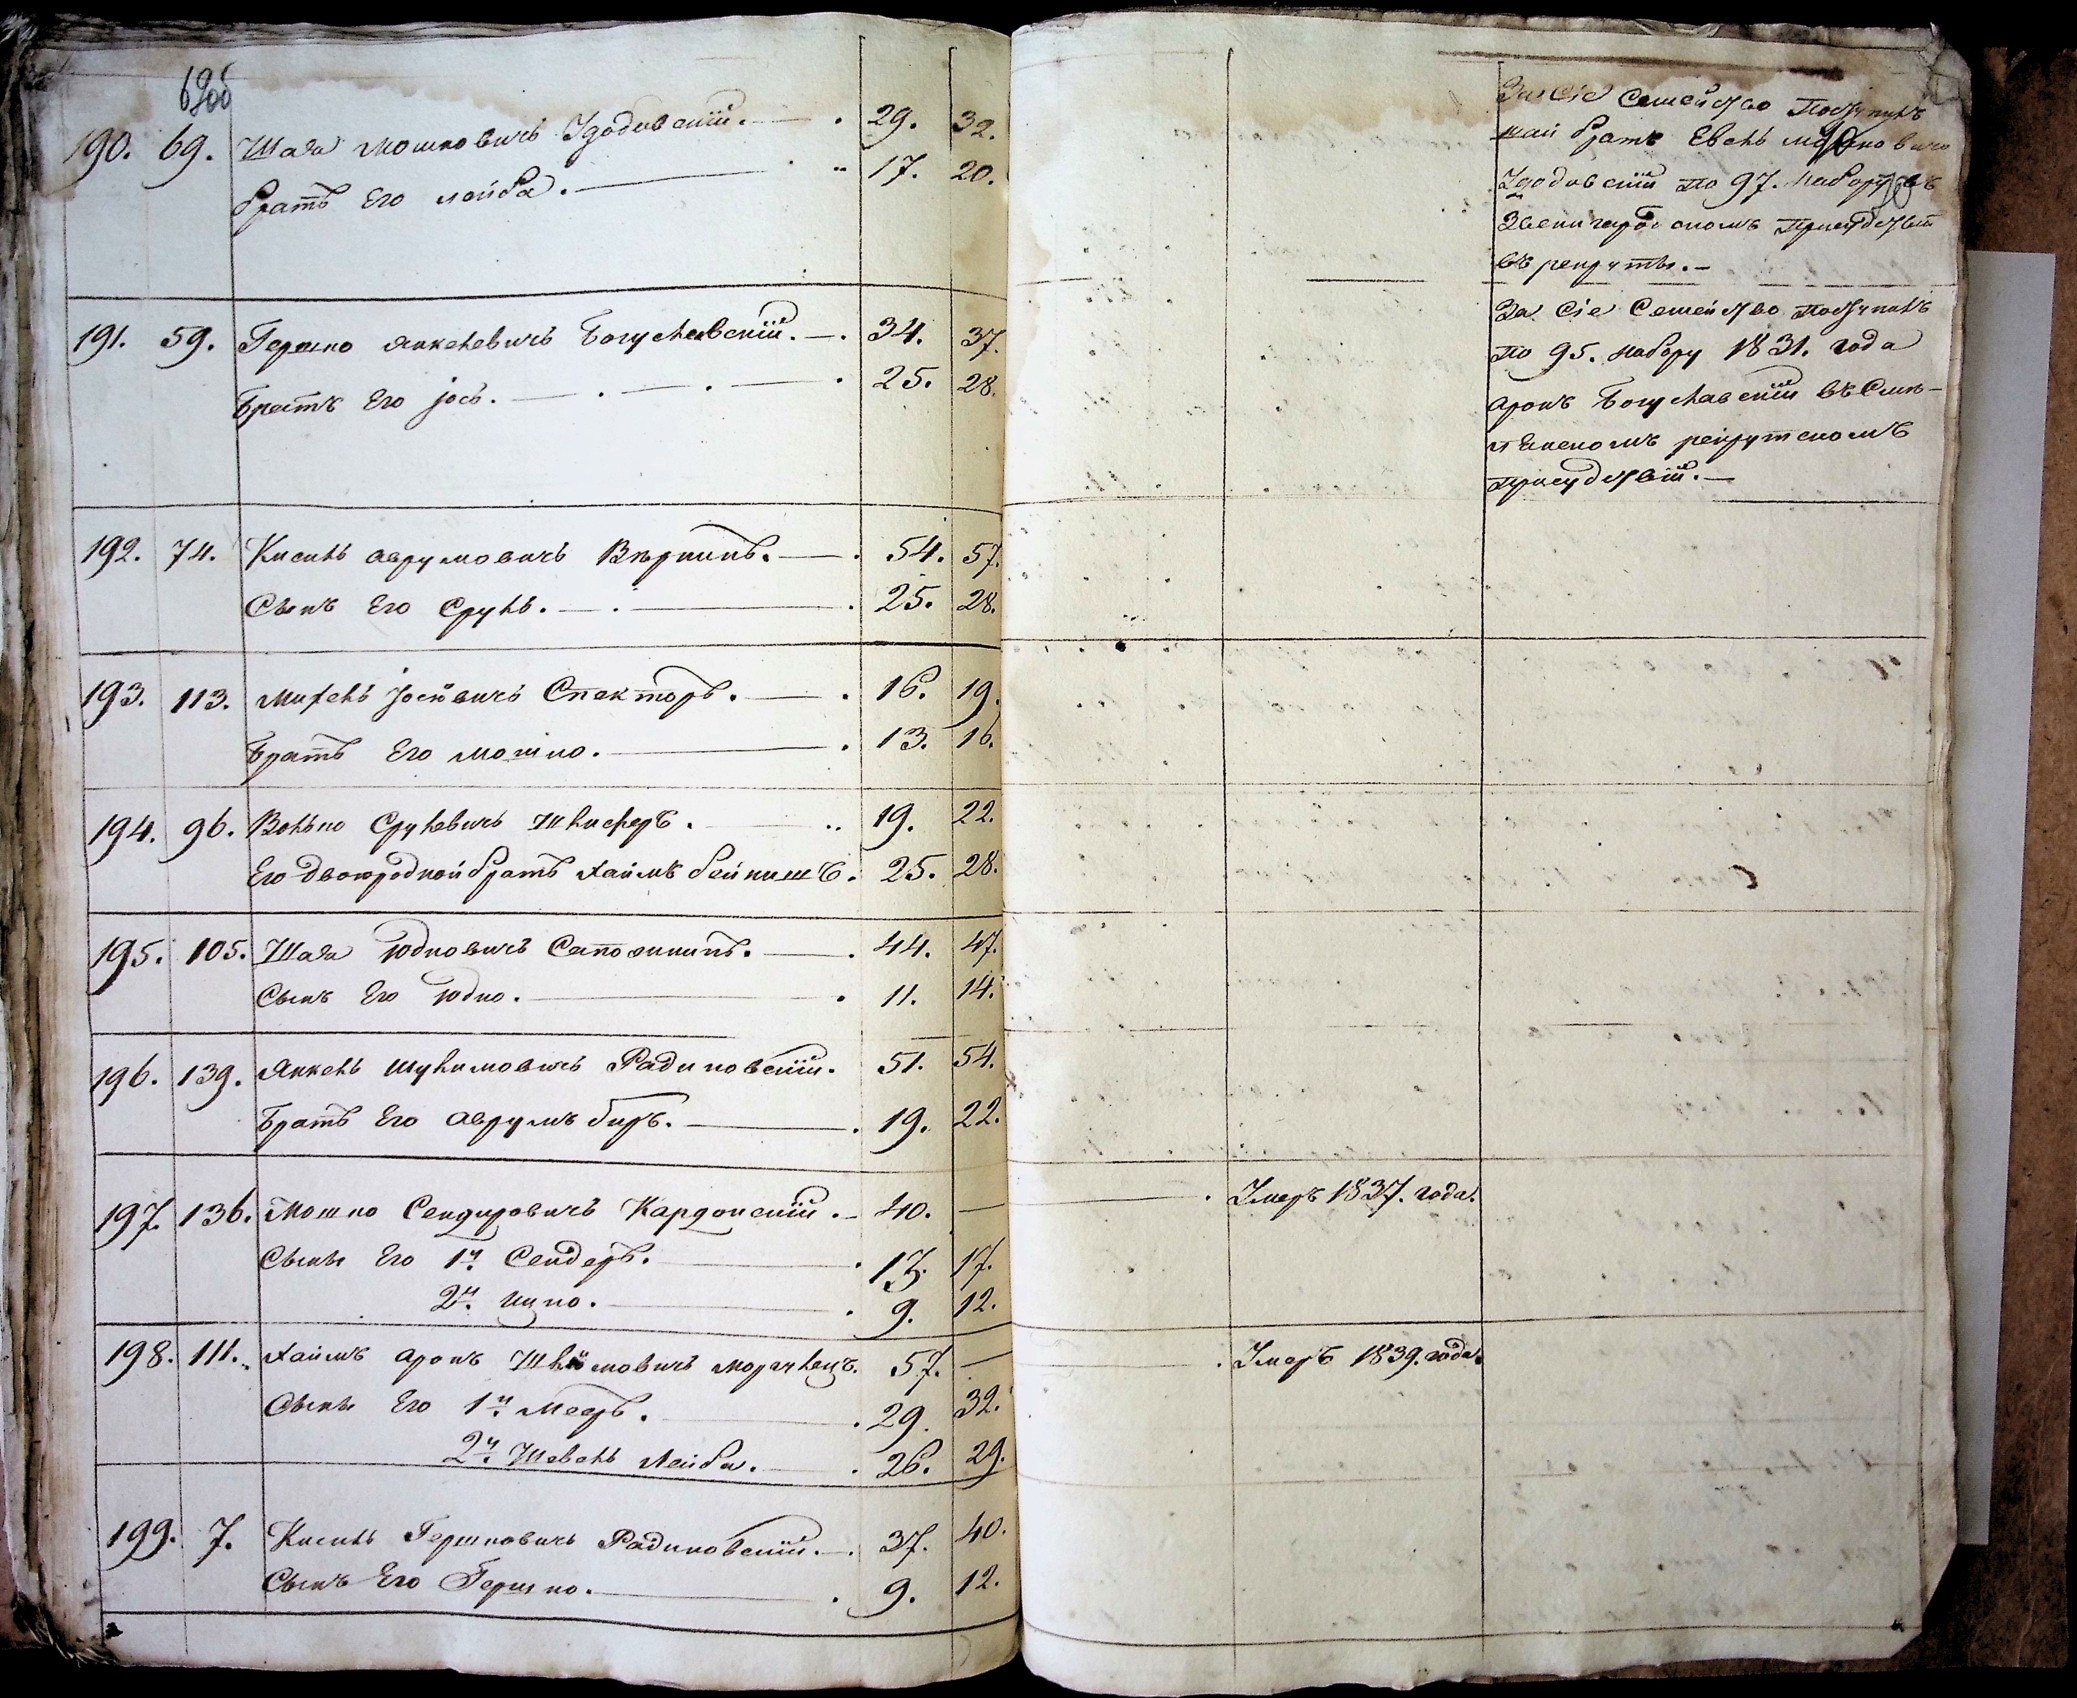 69об
190. 69. Шая Мошковичъ Удодовскій. 29. 32.
братъ Его лейба. 17. 20.
За сіе Семейство Поступилъ
братъ Евель Мошковичъ
Удодовскій по 97. набору въ
Звенигородскомъ Присудствіи
въ рекруты.
191. 59. Гершко Янкелевичъ Богуславскій. 34. 37.
Братъ Его іось. 25. 28.
За Сіе Семейство Поступилъ
по 95. набору 1831. года
аронъ Богуславскій въ
рекрутскомъ
присудствіи.
192. 74. Кисиль аврумовичъ 54. 57.
Сынъ Его Сруль. 25. 28.
193. 113. Михель Іосіовичъ Спекторъ. 16. 19.
Братъ Его мошко. 13. 16.
194. 96. Волько Срулевичъ Шлиферъ. 19. 22.
Его двоюродной братъ хаимъ бейнишъ. 25. 28.
195. 105. Шая Юдковичъ Сапожникъ. 44. 47.
Сынъ Его Юдко. 11. 14.
196. 139. Янкель шулимовичъ Радиновскій. 51. 54.
Братъ Его аврумъ беръ. 19. 22.
197. 136. Мошко Сендировичъ Кардонскій. 40. — Умеръ 1837. года.
Сыны Его 1й Сендеръ. 13. 17.
2й Ицко. 9. 12.
198. 111. хаимъ аронъ Шліомовичъ моргулецъ. 57. — Умеръ 1839. года.
Сыны Его 1й Мееръ. 29. 32.
2й Шевель Лейба. 26. 29.
199. 7. Кисиль Гершковичъ Радиновскій. 37. 40.
Сынъ Его Гершко. 9. 12.